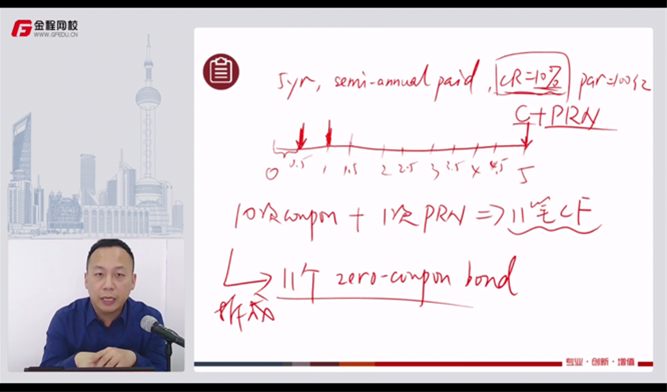 金程网校
WWW.GFEDU.CN
5yr, semi-annual paid, CR=10% par=100亿
C+PRN
0 0.5 1 1.5 2 2.5 3 3.5 4 4.5 5
10次coupon + 1次PRN => 11笔CF
拆成
11个 zero-coupon bond
专业·创新·增值